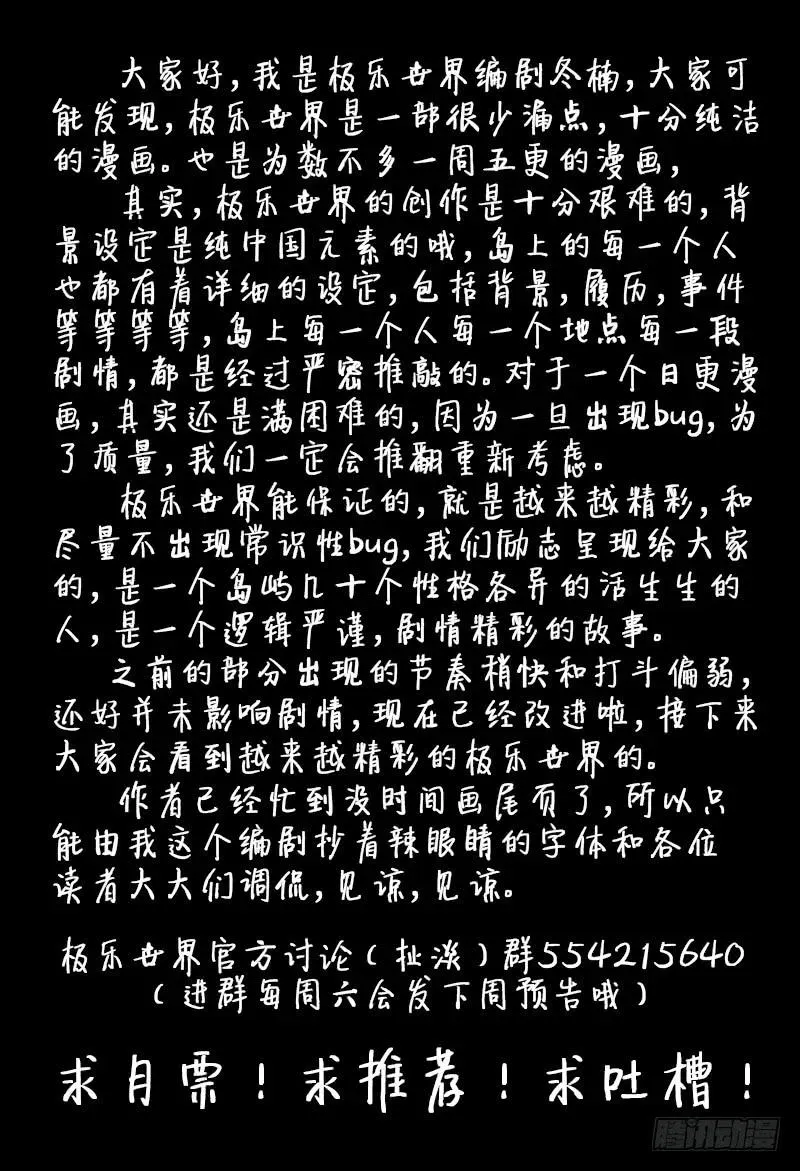 大家好，我是极乐世界编剧冬楠，大家可
能发现，极乐世界是一部很少漏点，十分纯洁
的漫画。也是为数不多一周五更的漫画，
其实，极乐世界的创作是十分艰难的，背
景设定是纯中国元素的哦，岛上的每一个人
也都有着详细的设定，包括背景，履历，事件
等等等等，岛上每一个人每一个地点每一段
剧情，都是经过严密推敲的。对于一个日更漫
画，其实还是满困难的，因为一旦出现bug，为
了质量，我们一定会推翻重新考虑。
极乐世界能保证的，就是越来越精彩，和
尽量不出现常识性bug，我们励志呈现给大家
的，是一个岛屿几十个性格各异的活生生的
人，是一个逻辑严谨，剧情精彩的故事。
之前的部分出现的节奏稍快和打斗偏弱，
还好并未影响剧情，现在已经改进啦，接下来
大家会看到越来越精彩的极乐世界的。
作者已经忙到没时间画尾页了，所以只
能由我这个编剧抄着辣眼睛的字体和各位
读者大大们调侃，见谅，见谅。
极乐世界官方讨论（扯淡）群554215640
（进群每周六会发下周预告哦）
求月票！求推荐！求吐槽！
腾讯动漫